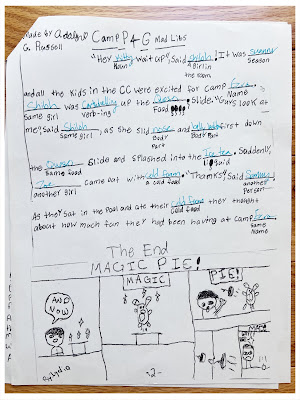 made by
G. Russell Camp P4G Mad Libs
"Hey Kitty wait up", Said Shiloh. It was summer
Noun a girl in the room Season
and all the kids in the CC were excited for Camp
Name
Shiloh was up the Slide. "Guys look at
Same girl verb-ing Food
me", Said Shiloh, as She slid and first down
Same girl Body Part Body Part
the Slide and splashed into the Suddenly,
Same food Liquid
Zoe came out with Cold Foam. "Thanks," Said
another girl a cold food another Person
As they sat in the Pool and ate their Cold Foam they thought
Cold food
about how much fun they had been having at Camp
Same Name
The End
MAGIC PIE!
AND NOW
MAGIC
PIE!
-2-